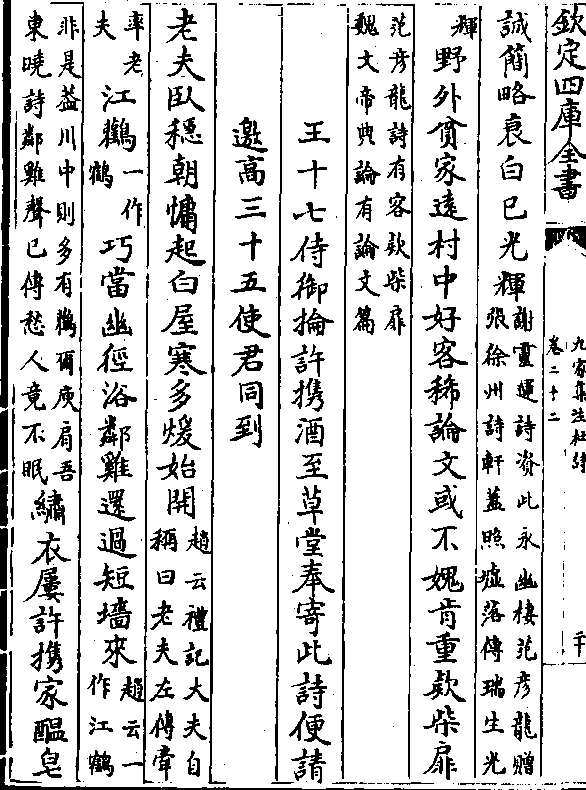 欽定四庫全書
九家集注杜詩
卷二十二
誠簡略衰白已光輝
謝靈運詩資此永幽棲范彥龍贈
張徐州詩軒蓋照墟落傳瑞生光
輝
野外貧家遠村中好客稀論文或不媿肯重欵柴扉
范彥龍詩有客欵柴扉
魏文帝典論有論文篇
王十七侍御掄許携酒至草堂奉寄此詩便請
邀高三十五使君同到
老夫臥穩朝慵起白屋寒多煖始開
趙云禮記大夫自
稱曰老夫左傳韋
率老
夫
江鸛
一作
鶴
巧當幽徑浴鄰雞還過短墻來
趙云一
作江鶴
非是葢川中則多有鸛彌庾肩吾
東曉詩鄰雞聲已傳愁人竟不眠
繡衣屢許携家醞皂